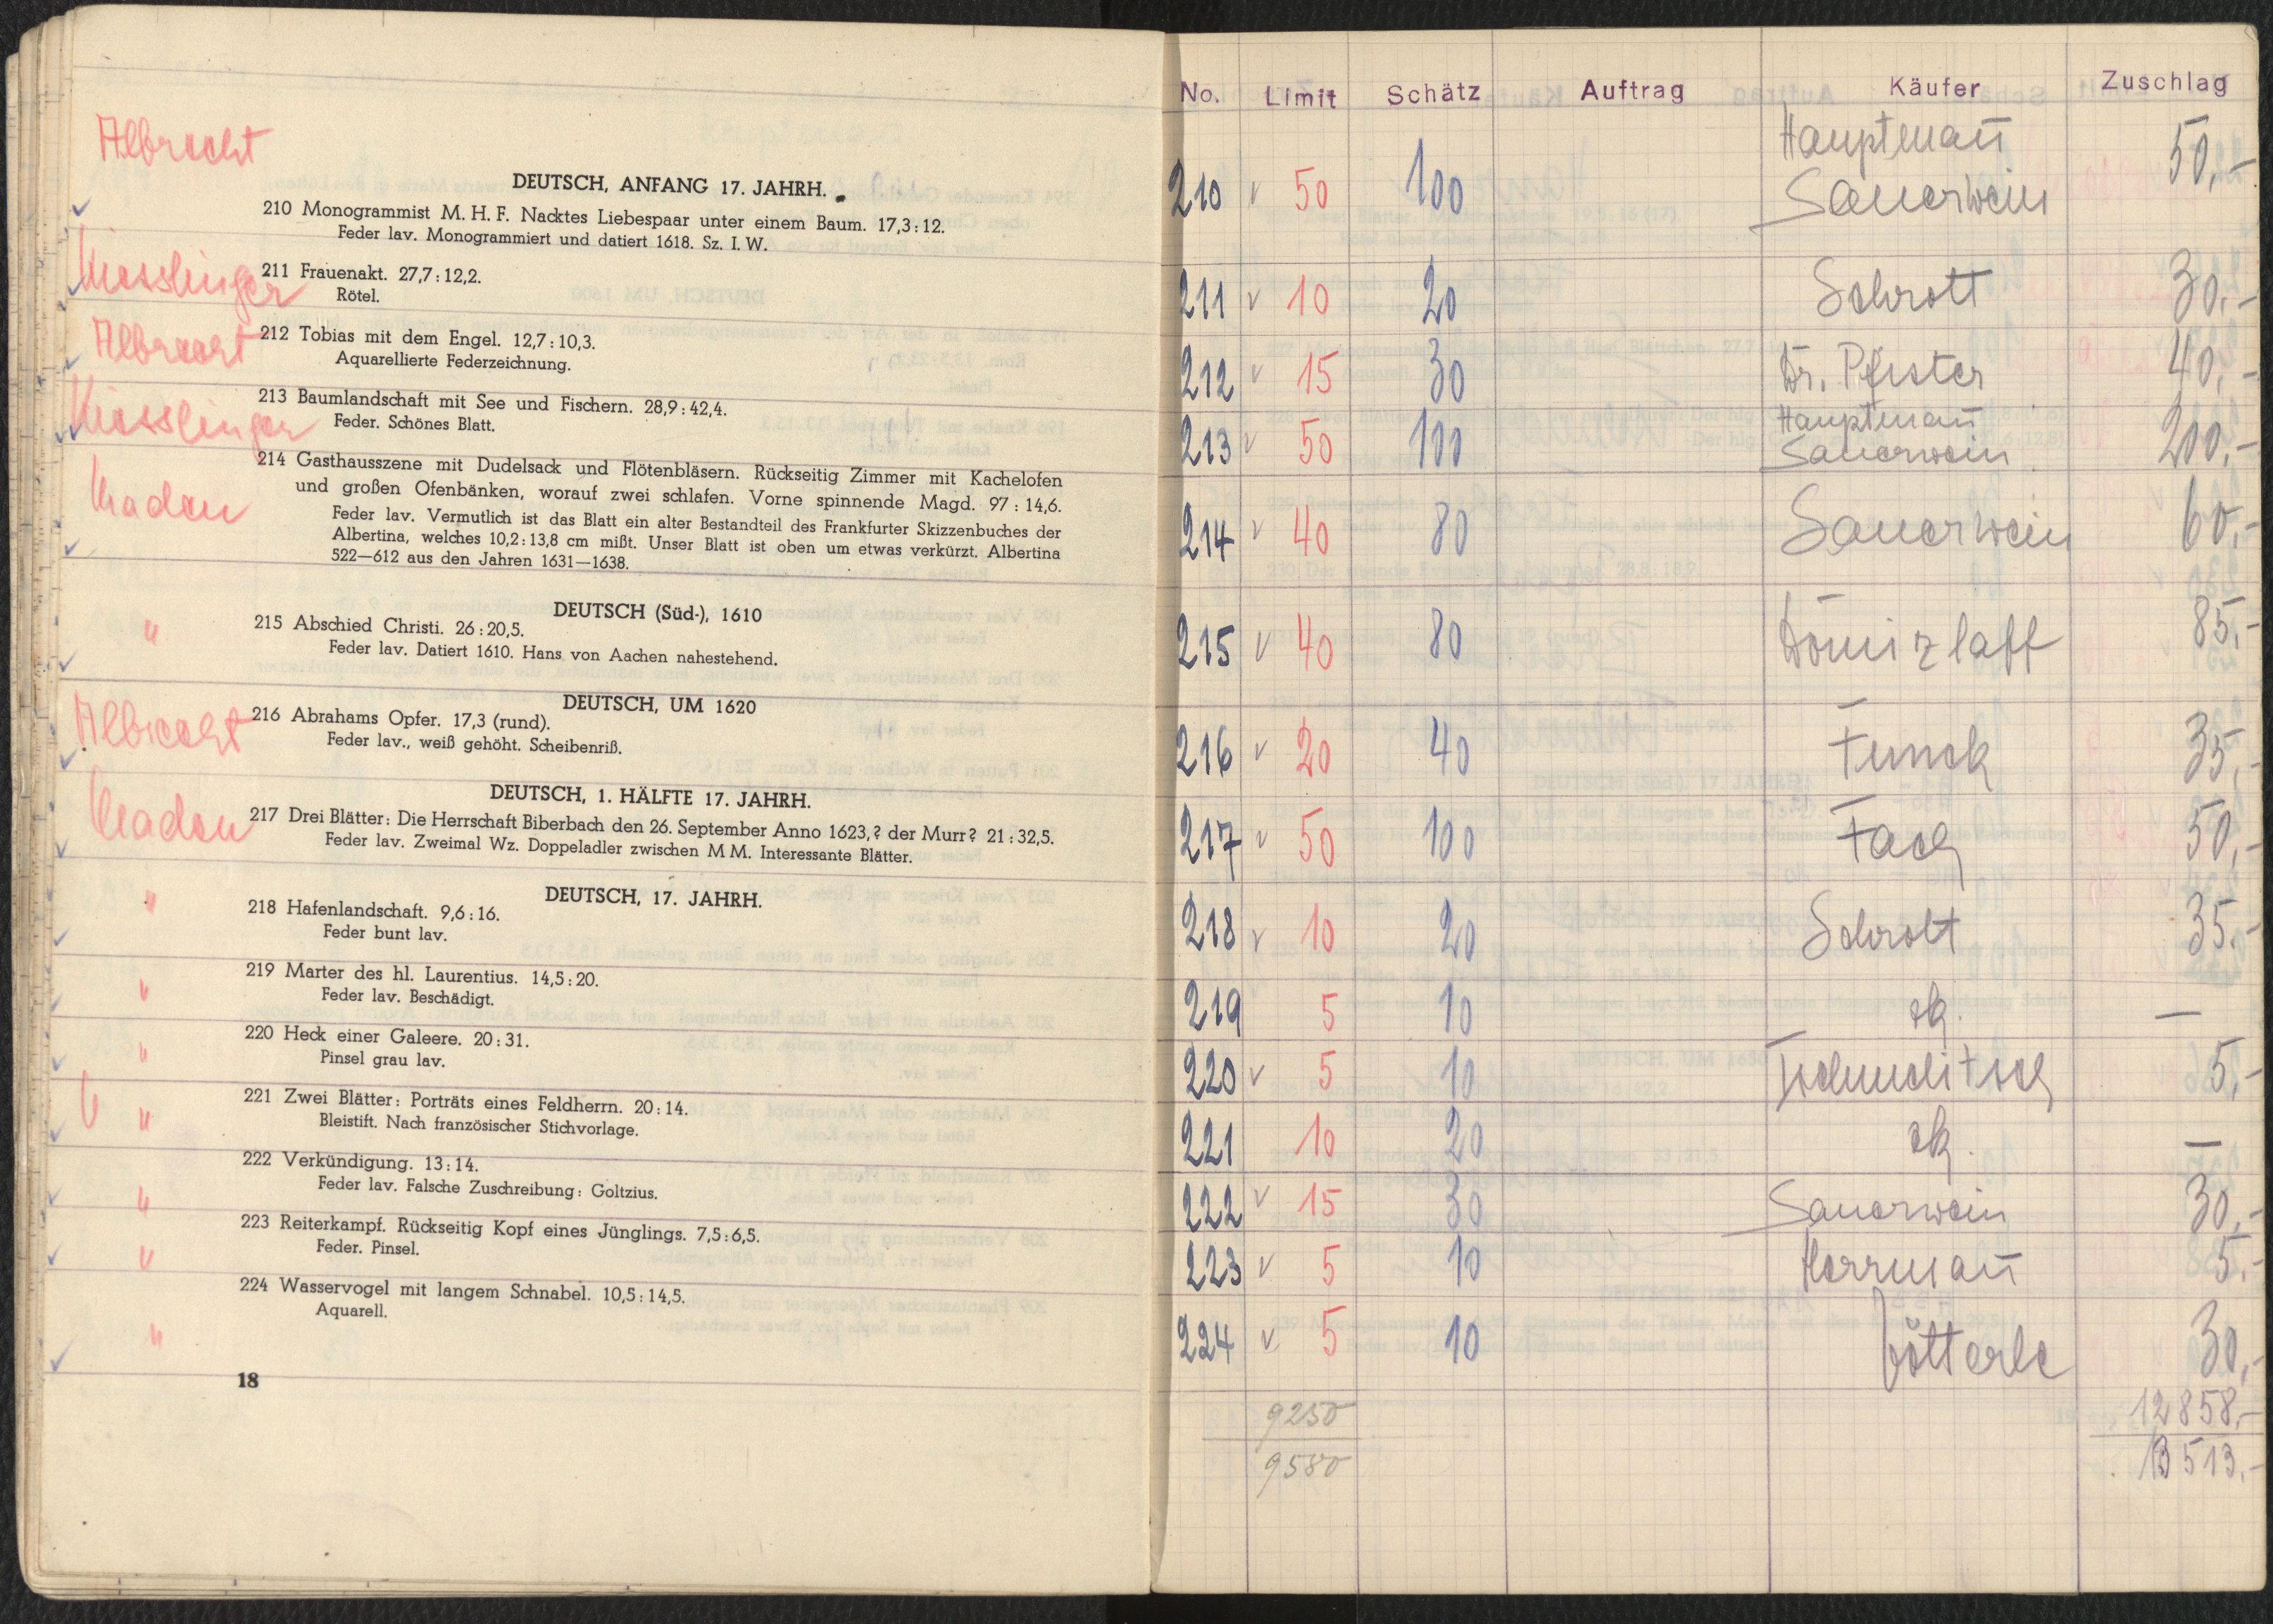 Albrecht
DEUTSCH, ANFANG 17. JAHRH.
210 Monogrammist M. H. F. Nacktes Liebespaar unter einem Baum. 17,3 : 12.
Feder lav. Monogrammiert und datiert 1618. Sz. I. W.
Kiesslinger
211 Frauenakt. 27,7 : 12,2.
Rötel.
Albrecht
212 Tobias mit dem Engel. 12,7 : 10,3.
Aquarellierte Federzeichnung.
Kiesslinger
213 Baumlandschaft mit See und Fischern. 28,9 : 42,4.
Feder. Schönes Blatt.
214 Gasthausszene mit Dudelsack und Flötenbläsern. Rückseitig Zimmer mit Kachelofen
und großen Ofenbänken, worauf zwei schlafen. Vorne spinnende Magd. 97 : 14,6.
Feder lav. Vermutlich ist das Blatt ein alter Bestandteil des Frankfurter Skizzenbuches der
Albertina, welches 10,2 : 13,8 cm mißt. Unser Blatt ist oben um etwas verkürzt. Albertina
522—612 aus den Jahren 1631—1638.
DEUTSCH (Süd-), 1610
215 Abschied Christi. 26 : 20,5.
"
Feder lav. Datiert 1610. Hans von Aachen nahestehend.
DEUTSCH, UM 1620
Albrecht
216 Abrahams Opfer. 17,3 (rund).
Feder lav., weiß gehöht. Scheibenriß.
DEUTSCH, 1. HÄLFTE 17. JAHRH.
217 Drei Blätter: Die Herrschaft Biberbach den 26. September Anno 1623, ? der Murr? 21 : 32,5.
Feder lav. Zweimal Wz. Doppeladler zwischen M M. Interessante Blätter.
DEUTSCH, 17. JAHRH.
"
218 Hafenlandschaft. 9,6 : 16.
Feder bunt lav.
219 Marter des hl. Laurentius. 14,5 : 20.
"
Feder lav. Beschädigt.
220 Heck einer Galeere. 20 : 31.
"
Pinsel grau lav.
221 Zwei Blätter: Porträts eines Feldherrn. 20 : 14.
"
Bleistift. Nach französischer Stichvorlage.
222 Verkündigung. 13 : 14.
"
Feder lav. Falsche Zuschreibung: Goltzius.
223 Reiterkampf. Rückseitig Kopf eines Jünglings. 7,5 : 6,5.
"
Feder. Pinsel.
224 Wasservogel mit langem Schnabel. 10,5 : 14,5.
Aquarell.
"
18
No. Limit Schätz Auftrag Käufer Zuschlag
210 v 50 100 Hauptmañ Sauerwein 50,-
211 v 10 20 Schrott 30,-
212 v 15 30 Dr. Pfister 40,-
213 v 50 100 Hauptmañ Sauerwein 200,-
214 v 40 80 Sauerwein 60,-
215 v 40 80 Dömizlaff 85,-
216 v 20 40 Funck 35,-
217 v 50 100 Fach 50,-
218 v 10 20 Schrott 35,-
219 5 10 zk. —
220 v 5 10 5,-
221 10 20 zk. —
222 v 15 30 Sauerwein 30,-
223 v 5 10 Herrmañ 5,-
224 v 5 10 Vötterle 30,-
9250 12858,-
9580 13513,-